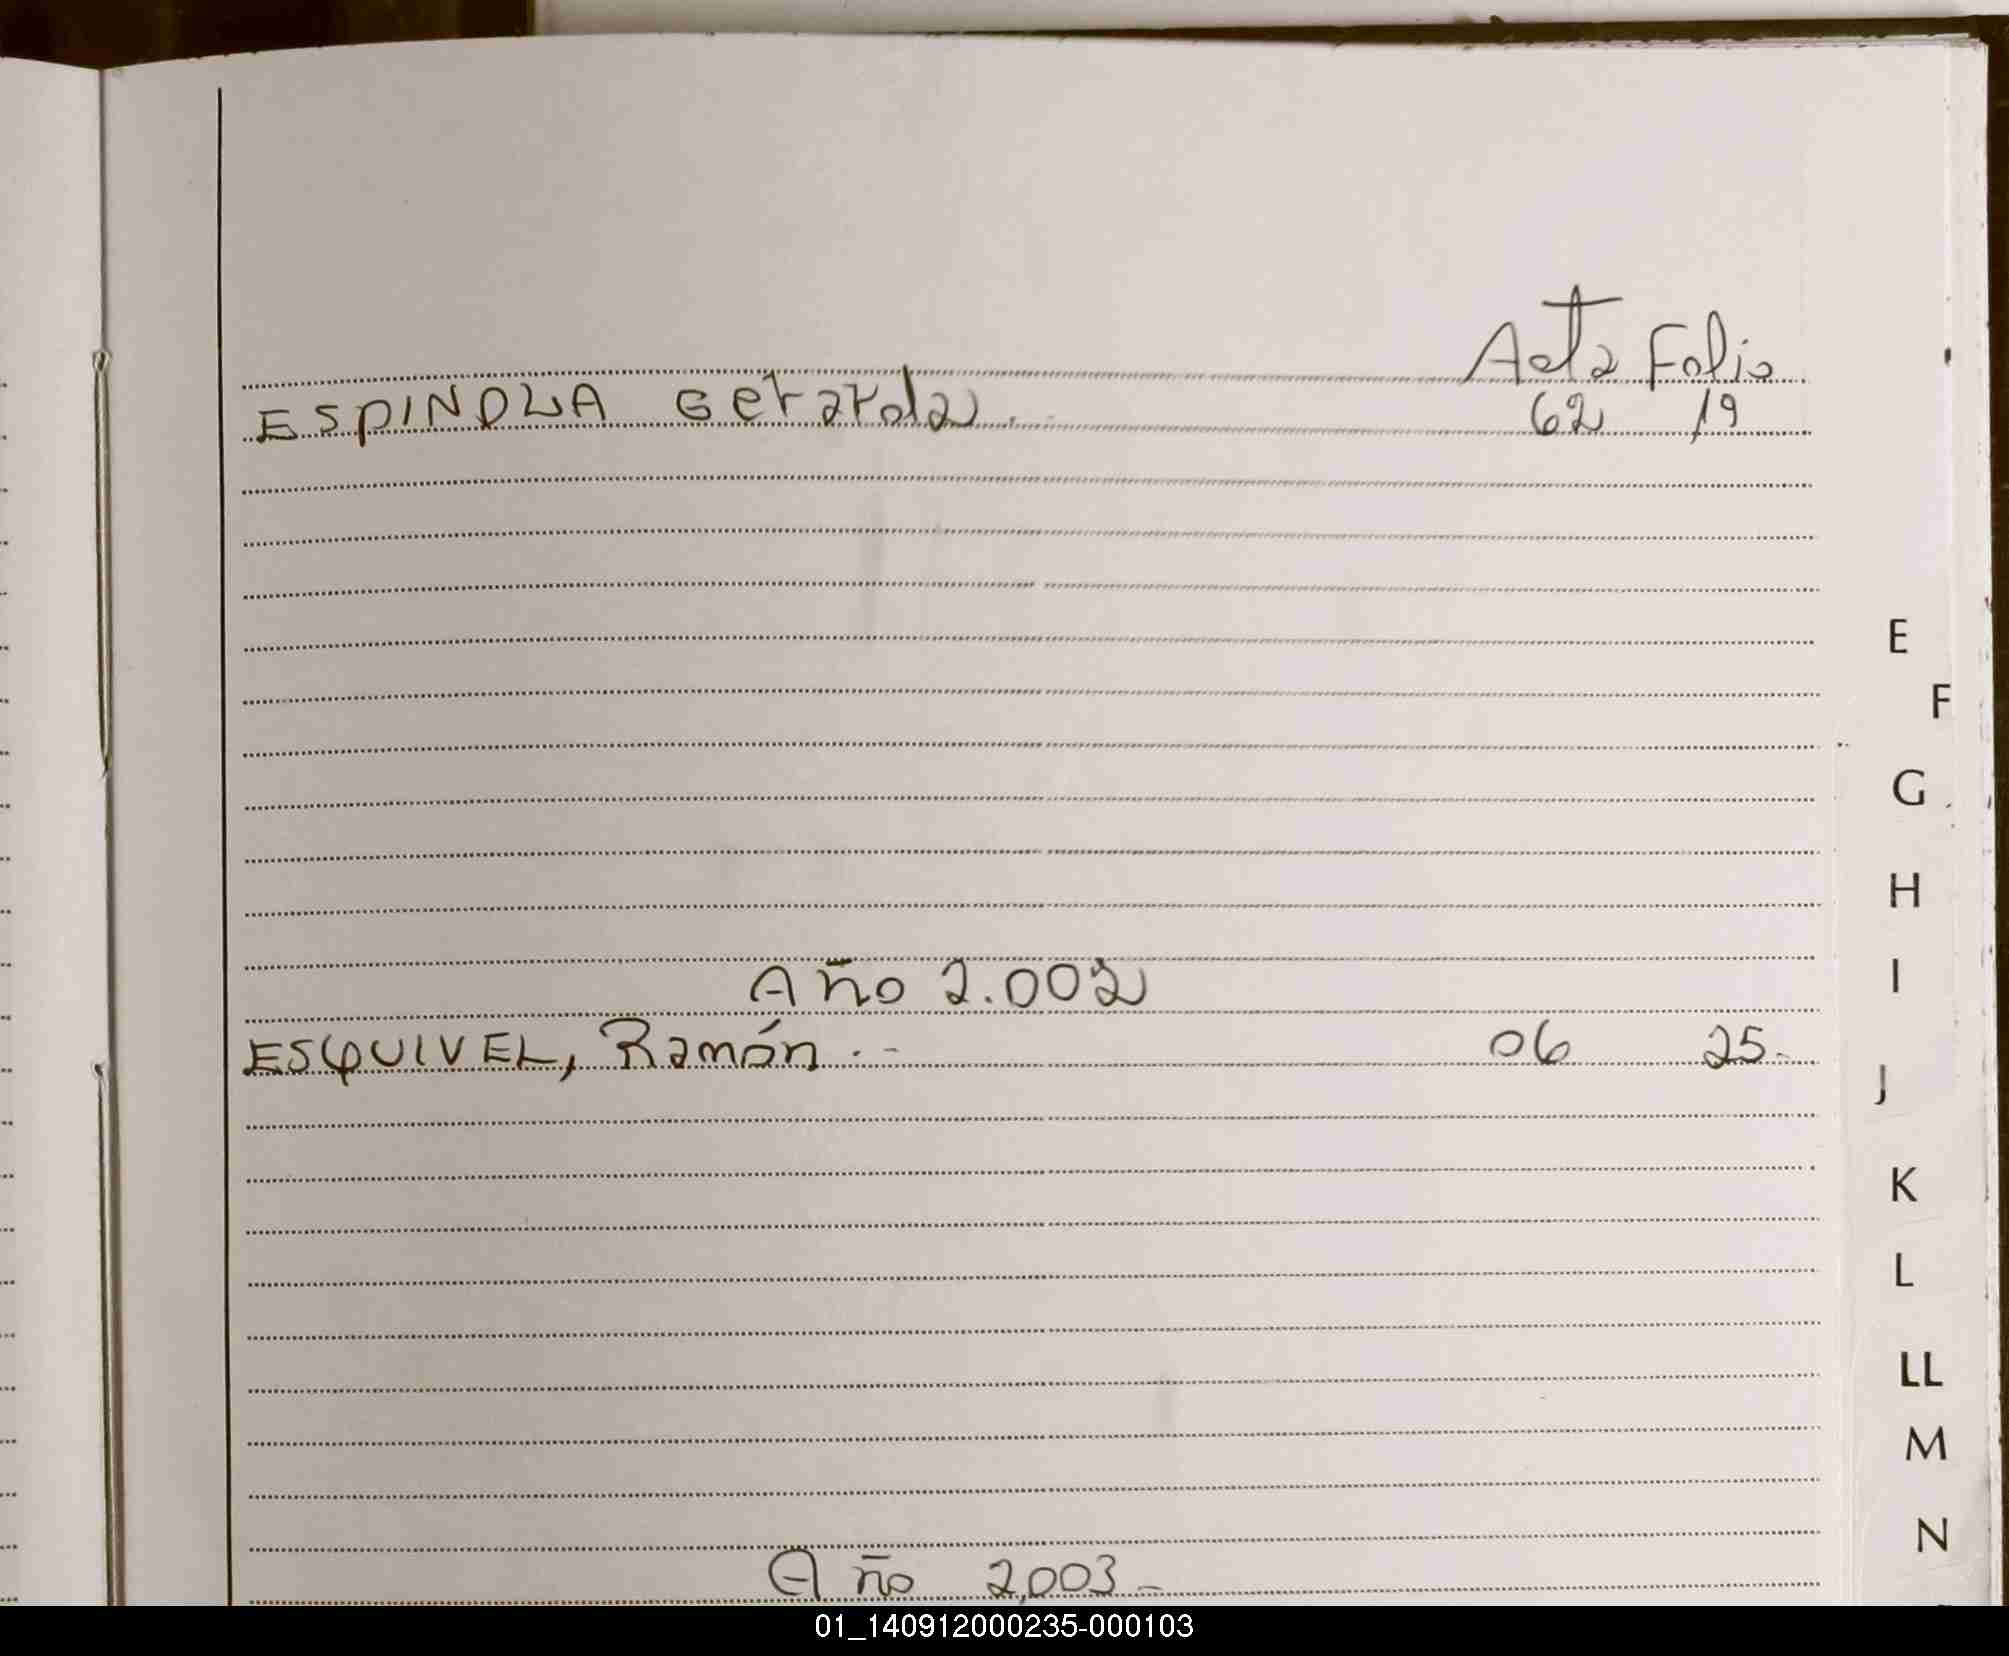 Acta Folio
ESPINOLA Gerarda. 62 19
E
F
G
H
Año 2.002
I
ESQUIVEL, Ramón.- 06 25-
J
K
L
LL
M
N
Año 2,003-
01_140912000235-000103